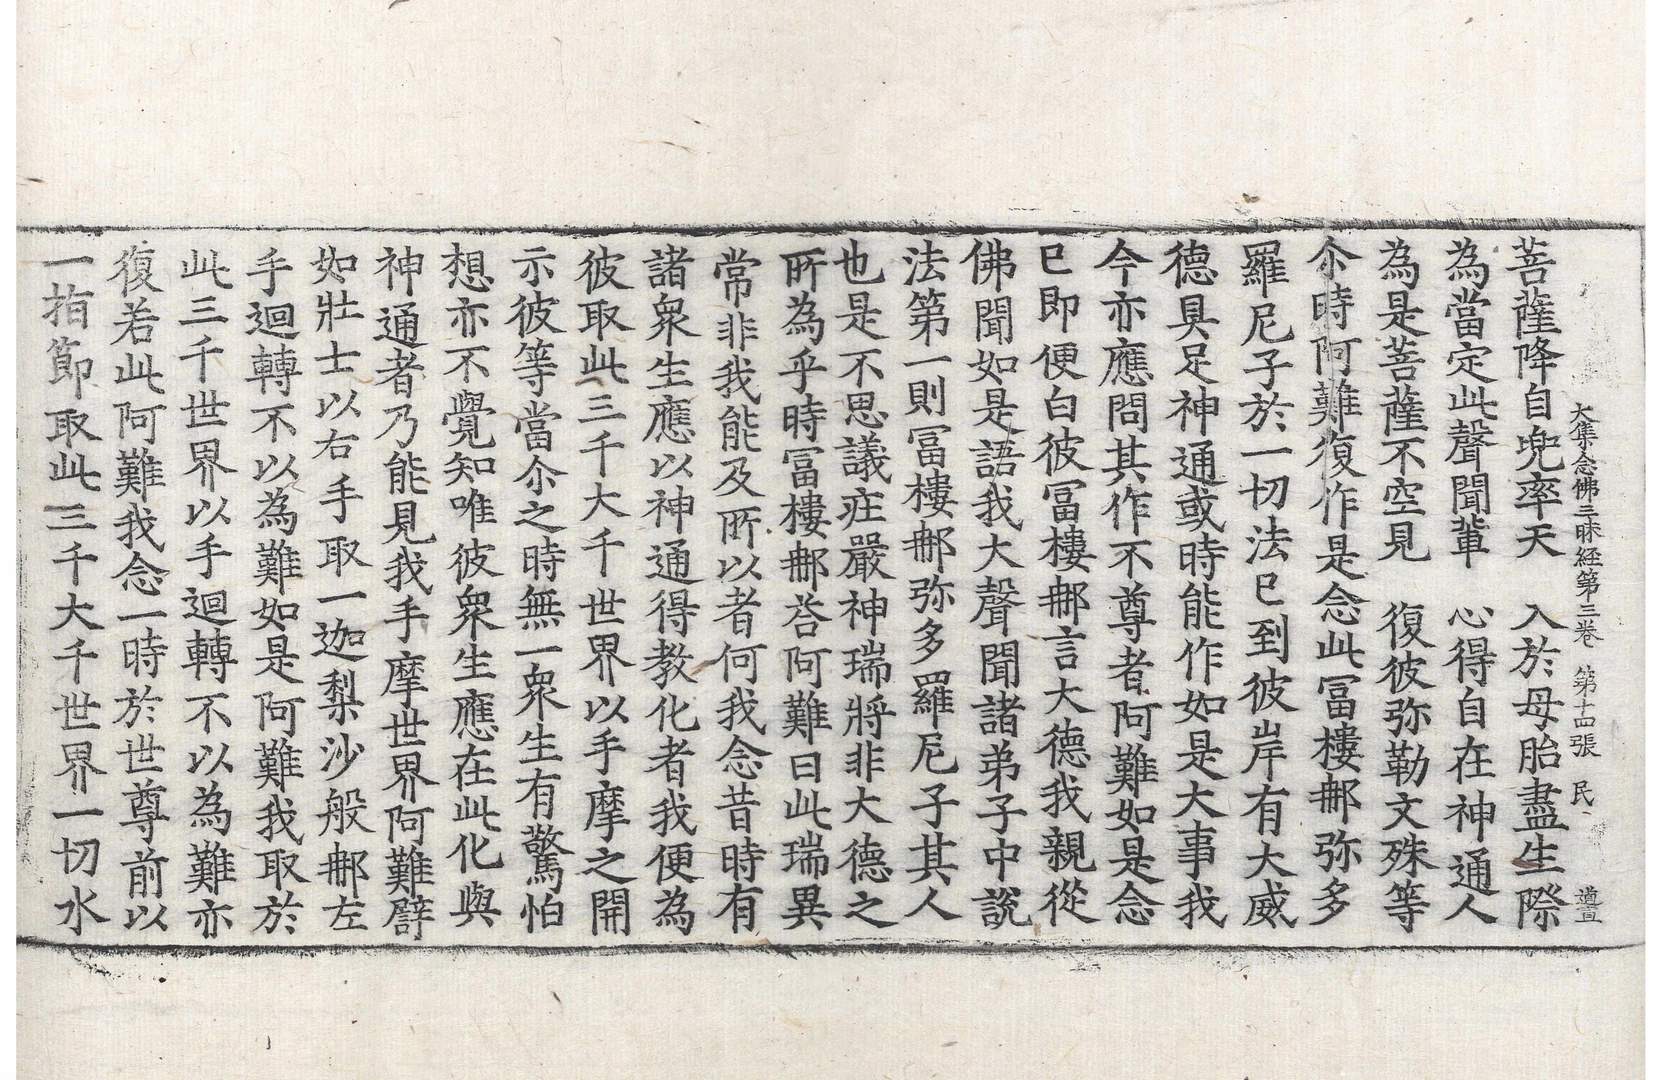 大集念佛三昧經第三卷 第十四張 民 遵宣
菩薩降自兜率天 入於母胎盡生際
為當定此聲聞輩 心得自在神通人
為是菩薩不空見 復彼弥勒文殊等
尒時阿難復作是念此冨樓那弥多
羅尼子於一切法已到彼岸有大威
德具足神通或時能作如是大事我
今亦應問其作不尊者阿難如是念
已即便白彼冨樓那言大德我親從
佛聞如是語我大聲聞諸弟子中說
法第一則冨樓那弥多羅尼子其人
也是不思議莊嚴神瑞將非大德之
所為乎時冨樓那荅阿難曰此瑞異
常非我能及所以者何我念昔時有
諸衆生應以神通得教化者我便為
彼取此三千大千世界以手摩之開
示彼等當尒之時無一衆生有驚怕
想亦不覺知唯彼衆生應在此化與
神通者乃能見我手摩世界阿難譬
如壯士以右手取一迦梨沙般那左
手迴轉不以為難如是阿難我取於
此三千世界以手迴轉不以為難亦
復若此阿難我念一時於世尊前以
一指節取此三千大千世界一切水